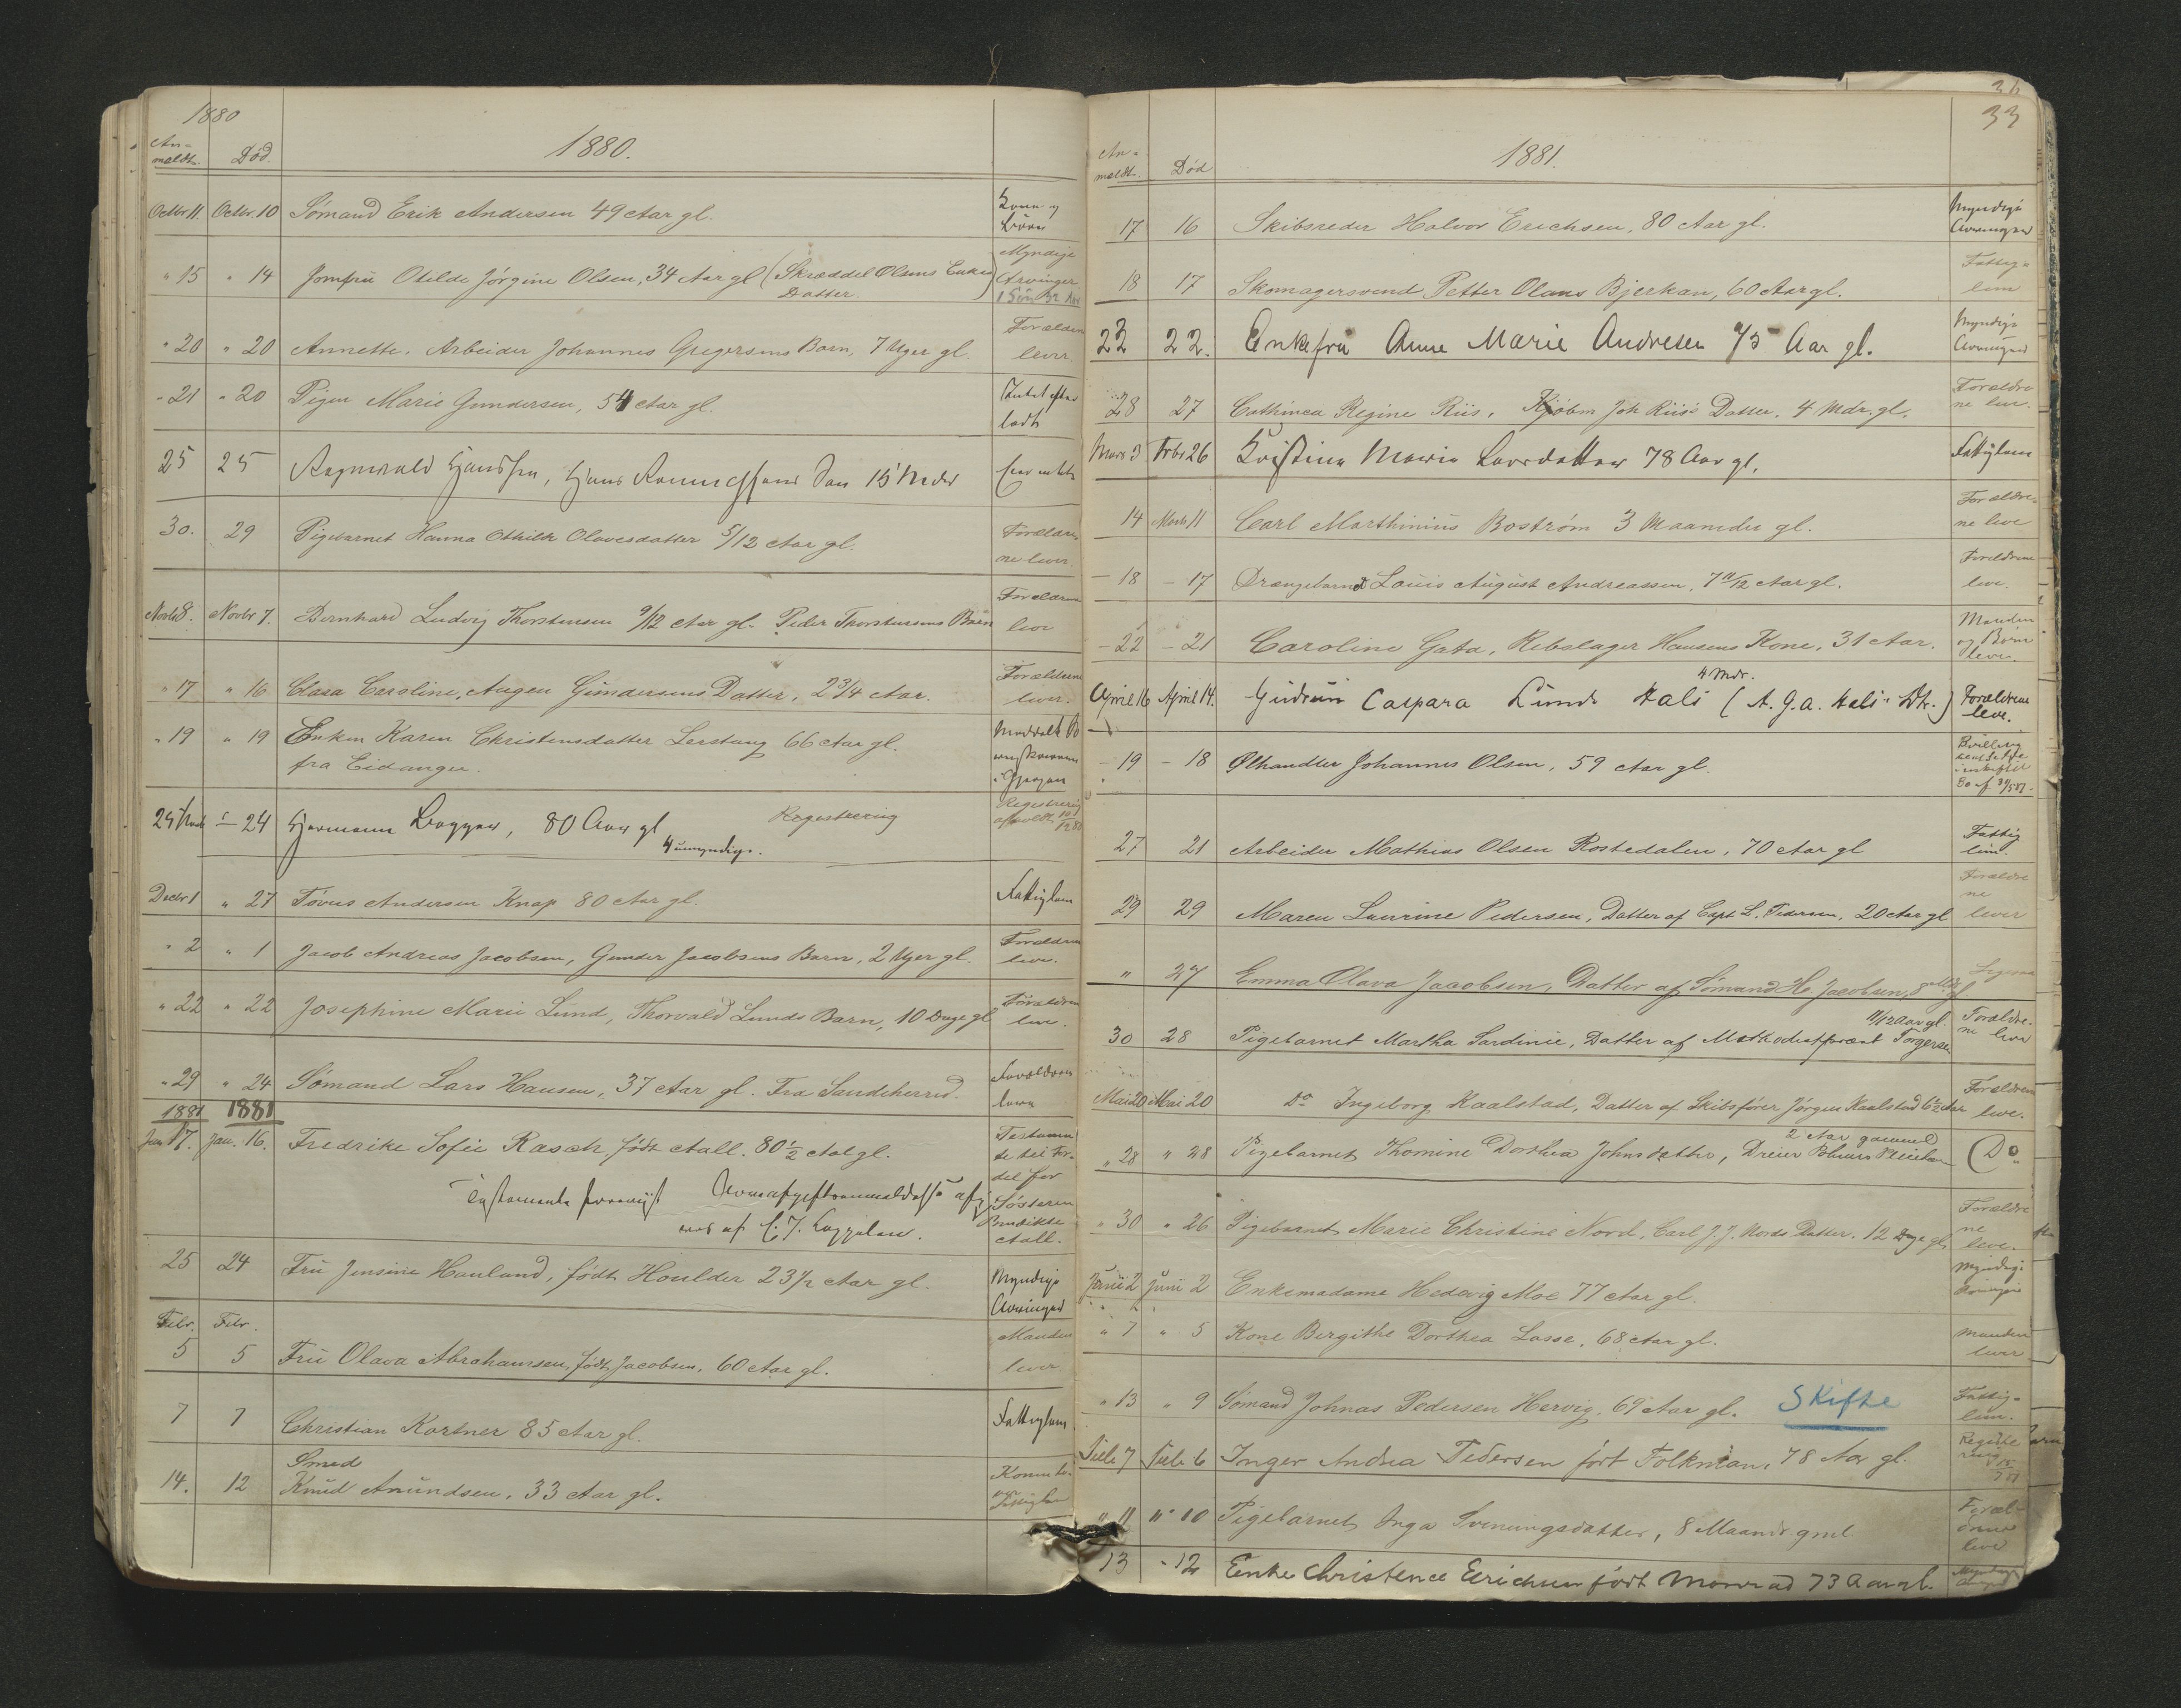 1880
An-
meldt. Død. 1880.
Octbr 11. Octbr. 10 Sömand Erik Andersen 49 Aar gl. Kone og
Börn
" 15 " 14 Jomfru Otilde Jörgine Olsen, 34 Aar gl (Skræddel Olsens Enkes
Datter.) Myndige
Arvinger
" 20 " 20 Annette. Arbeider Johannes Gregersens Barn, 7 Uger gl. Forældrene
lever
- 21 " 20 Pigen Marie Gundersen, 54 Aar gl. Intet efter
ladt
25 25
30. 29 Pigebarnet Hanna Othilde Olavesdatter 5/12 Aar gl. Forældre
ne lever
Novbr 8. Novbr 7. Bernhard Ludvig Thorstensen 9/12 Aar gl. Peder Thorstensens Barn Forældrene
leve
" 17 " 16 Clara Caroline, Augen Gundersens Datter, 2 3/4 Aar. Forældrene
lever.
" 19 " 19 Enken Karen Christensdatter Lerstang 66 Aar gl.
fra Eidanger.
- 24 Hermann Bagger, 80 Aar gl Registrering
4 umyndige.
Decbr 1 " 27 Andersen Knap 80 Aar gl. Fattiglem
" 2 " 1 Jacob Andreas Jacobsen, Gunder Jacobsens Barn, 2 Uger gl. Forældrene
leve.
" 22 " 22 Josephine Marie Lund, Thorvald Lunds Barn, 10 Dage gl Forældrene
leve.
" 29 " 24 Sömand Lars Hansen, 37 Aar gl. Fra Sandeherred. Forældrene
leve
1881 1881
Jan 17. Jan. 16. Fredrike Sofie Rasch födt Aall. 80 1/2 Aar gl. Testamen
te til For-
del for
Söstern
Benedikte
Aall.
25 24 Fru Jensine Houland, födt Houlder 23 1/2 Aar gl. Myndige
Arvinger
Febr. Febr.
5 5 Fru Olava Abrahamsen, födt Jacobsen, 60 Aar gl. Manden
lever
7 7 Christian Kortner 85 Aar gl. Fattiglem
Smed
14. 12 Knud Anundsen, 33 Aar gl.
36
33
An-
meldt. Död 1881.
17 16 Skibsreder Halvor Erichsen, 80 Aar gl. Myndige
Arvinger
18 17 Skomagersvend Petter Olaus Bjerkan, 60 Aar gl. Fattig-
lem
22 22. Enkefru Anne Marie Andresen 75 Aar gl. Myndige
Arvinger
28 27 Cathinca Regine Riis, Kjöbm Joh Riis's Datter. 4 Mdr. gl. Forældre
ne leve.
Mars 3 Febr 26 Kristine Marie Larsdatter 78 Aar gl. Fattiglem
14 Marts 11 Carl Marthinius Boström 3 Maaneder gl. Forældre
ne leve
- 18 - 17 Drengebarnet Louis August Andreassen, 7 Aar gl. Forældrene
leve.
- 22 - 21 Caroline Gata, Rebslager Hansens Kone, 31 Aar. Manden
og Börn
leve.
4 Mdr.
April 16 April 14. Gudrun Caspara Lund Hals (A. G. A. Hals' Dtr.) Forældrene
leve.
- 19 - 18 Ølhandler Johannes Olsen, 59 Aar gl.
27 21 Arbeider Mathias Olsen Rostedalen, 70 Aar gl Fattig
lem.
29 29 Maren Laurine Pedersen, Datter af Capt L. Pedersen, 20 Aar gl Forældre
ne
lever
" 27 Emma Olava Jacobsen, Datter af Sömand H. Jacobsen, 8 Mdr gl
11/12 Aar gl.
30 28 Pigebarnet Martha Sardinie, Datter af Torgersen Forældre-
ne leve
Mai 20 Mai 20 Do Ingeborg Kaalstad, Datter af Skibsförer Jörgen Kaalstad 6 1/2 Aar Forældrene
leve.
2 Aar gammel
" 28 " 28 Pigebarnet Thomine Dorthea Johnsdatter, Dreier Do
" 30 " 26 Pigebarnet Marie Christine Nord, Carl J. J. Nords Datter. 12 Dage gl Forældre
ne
leve.
Juni 2 Juni 2 Enkemadame Hedevig Moe 77 Aar gl. Myndige
Arvinger
" 7 " 5 Kone Birgithe Dorthea Lasse, 68 Aar gl. Manden
lever
" 13 " 9 Sömand Johnas Pedersen Hervig, 69 Aar gl. Skifte Fattig-
lem.
Juli 7 Juli 6 Inger Andrea Pedersen född Folkman, 78 Aar gl. Registre
ring
" 11 " 10 Pigebarnet Inga Sveningsdatter, 8 Maand. gml. Foræl-
drene
leve
13 - 12 Enke Christence Erichsen födt Monrad 73 Aar gl.